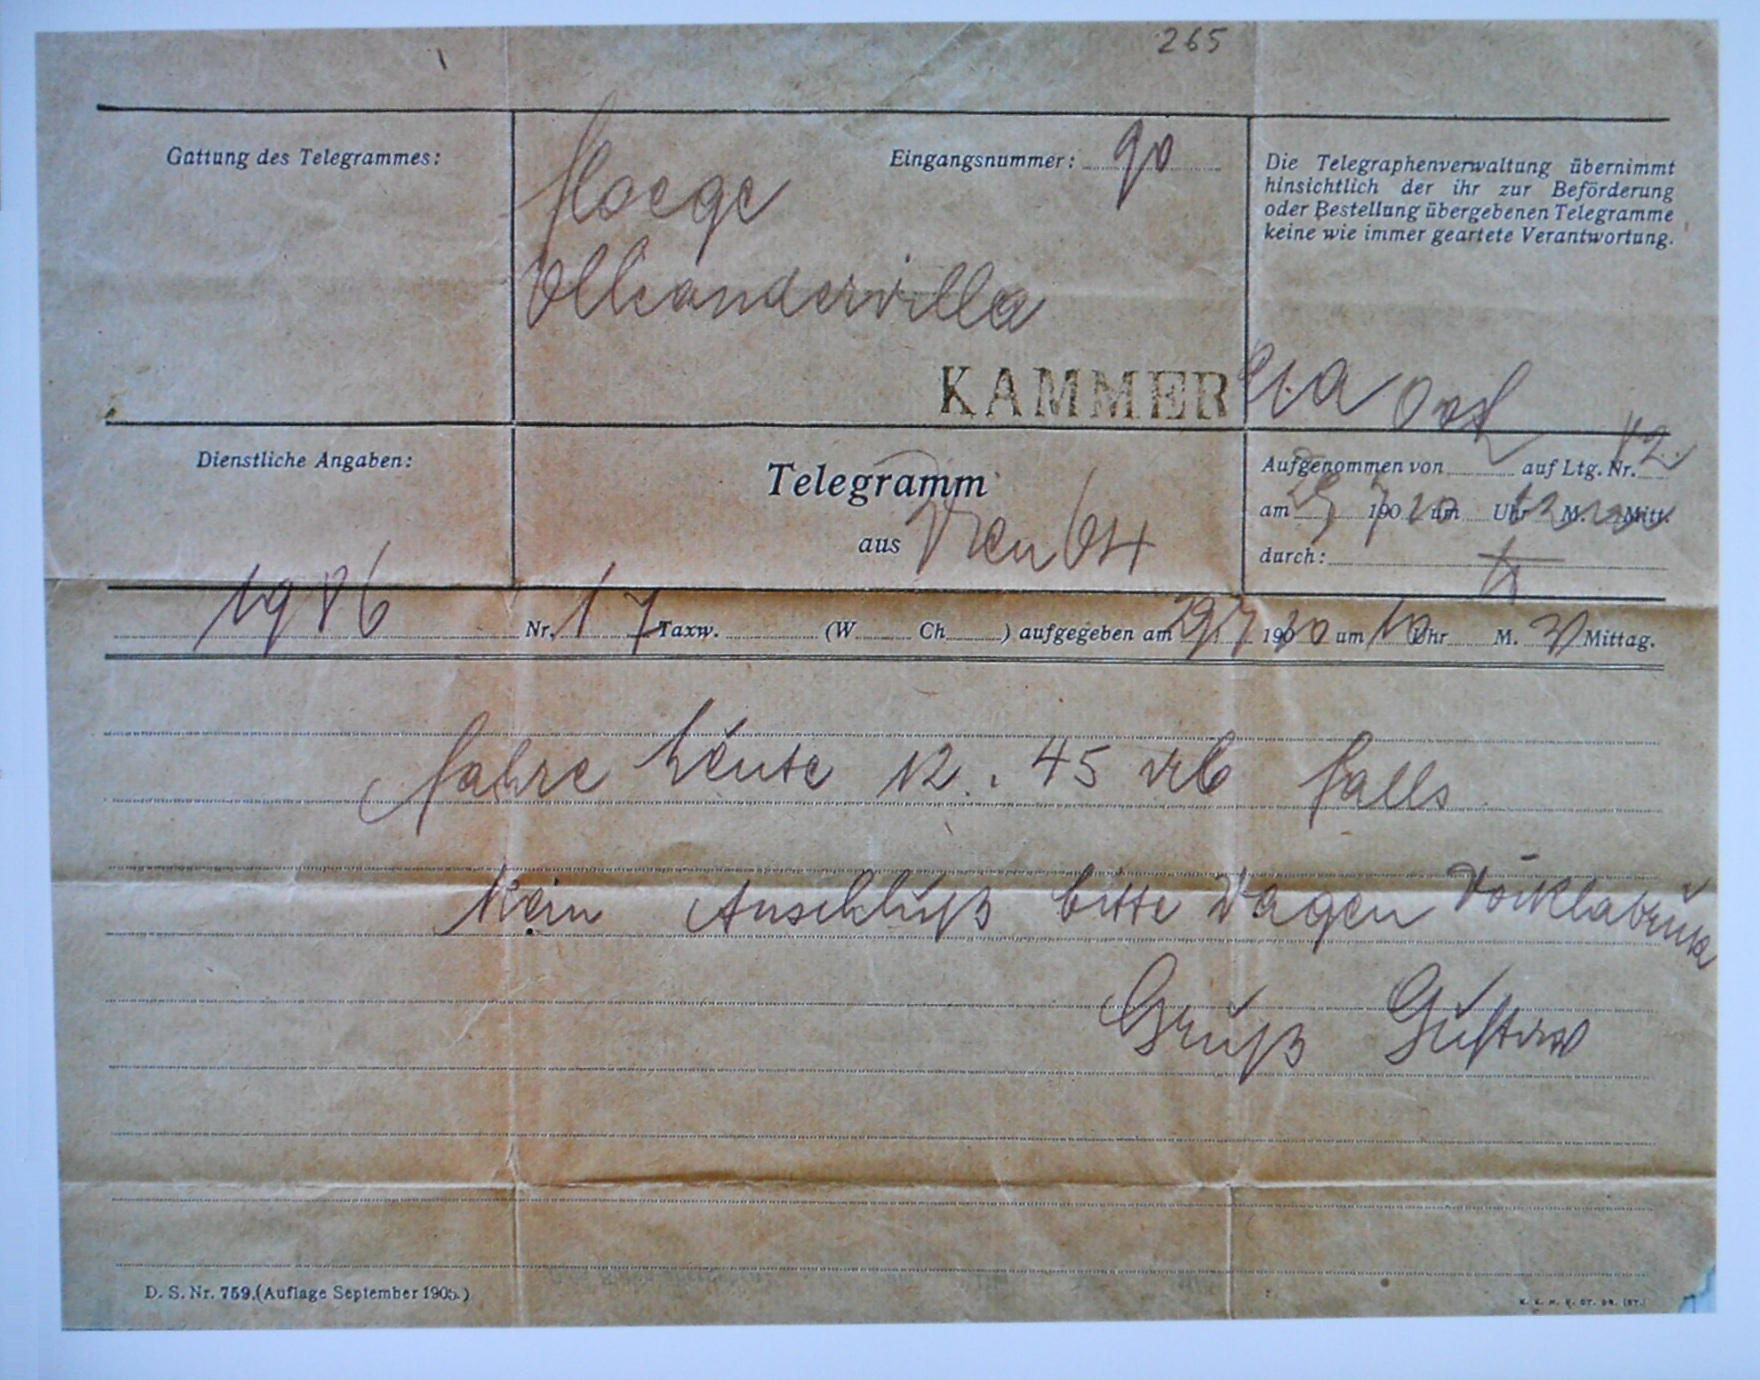 265
Gattung des Telegrammes:
Floege
Eingangsnummer: 90
Olleandervilla
Die Telegraphenverwaltung übernimmt
hinsichtlich der ihr zur Beförderung
oder Bestellung übergebenen Telegramme
keine wie immer geartete Verantwortung.
KAMMER
Dienstliche Angaben:
Telegramm
aus Wien
Aufgenommen von auf Ltg. Nr. 12
am 190 um Uhr M. Mitt.
durch:
Nr. 17 Taxw. (W Ch ) aufgegeben am 29/7 190 10 um 10 Uhr M. 30 Mittag.
fahre heute 12.45 falls
kein Anschluß bitte Wagen Vöcklabruck
Gruß Gustav
D. S. Nr. 759. (Auflage September 1905.)